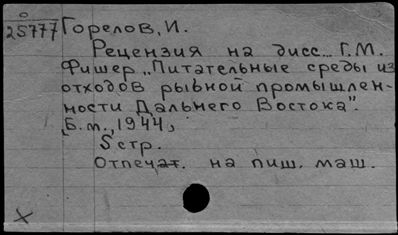 25777 Горелов, И.
Рецензия на дисс... Г.М.
Фишер „Питательные среды из
отходов рыбной промышлен-
ности Дальнего Востока".
[Б.м., 1944,
5 стр.
Отпечат. на пиш. маш.